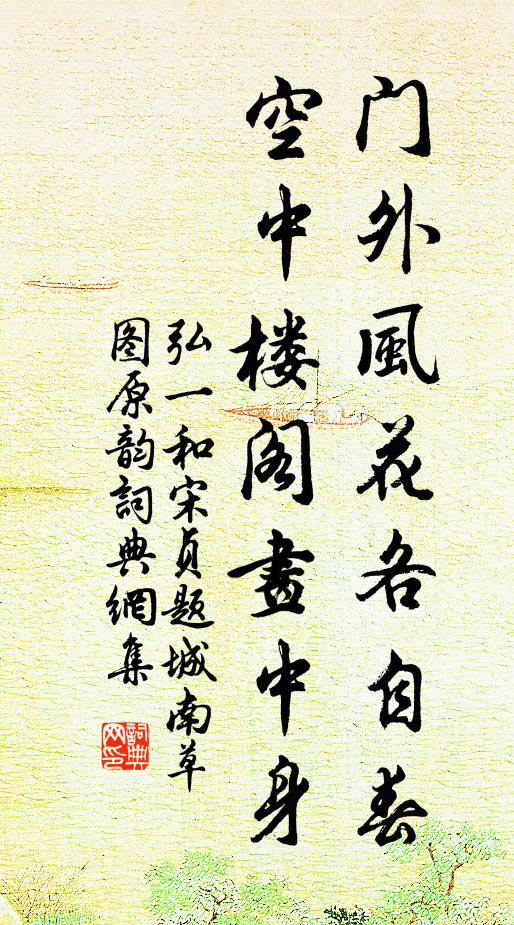 门外風花各自春
空中楼阁畫中身
弘一和宋贞题城南草
图原韵詞典網集
詞典网印